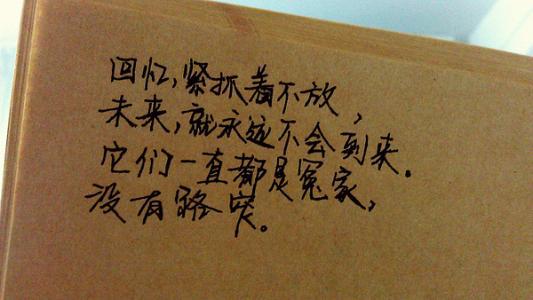 回忆,紧抓着不放,
未来,就永远不会到来。
它们一直都是冤家,
没有路窄。